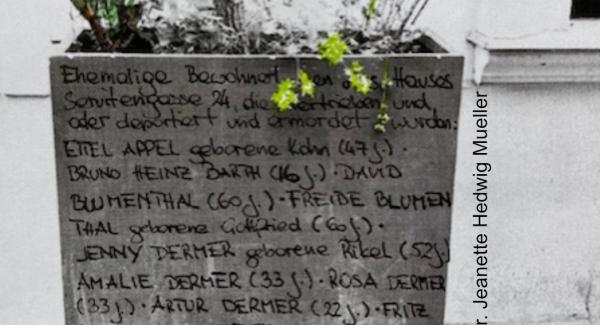 Ehemalige Bewohner des Hauses
Servitengasse 24, die vertrieben und
oder deportiert und ermordet wurden:
ETTEL APPEL geborene Kohn (47 J.) ·
BRUNO HEINZ BARTH (16 J.) · DAVID
BLUMENTHAL (60 J.) · FREIDE BLUMEN
THAL geborene Gottfried (60 J.) ·
JENNY DERMER geborene Rikel (52 J.)
AMALIE DERMER (33 J.) · ROSA DERMER
(33 J.) · ARTUR DERMER (22 J.) · FRITZ
r. Jeanette Hedwig Mueller